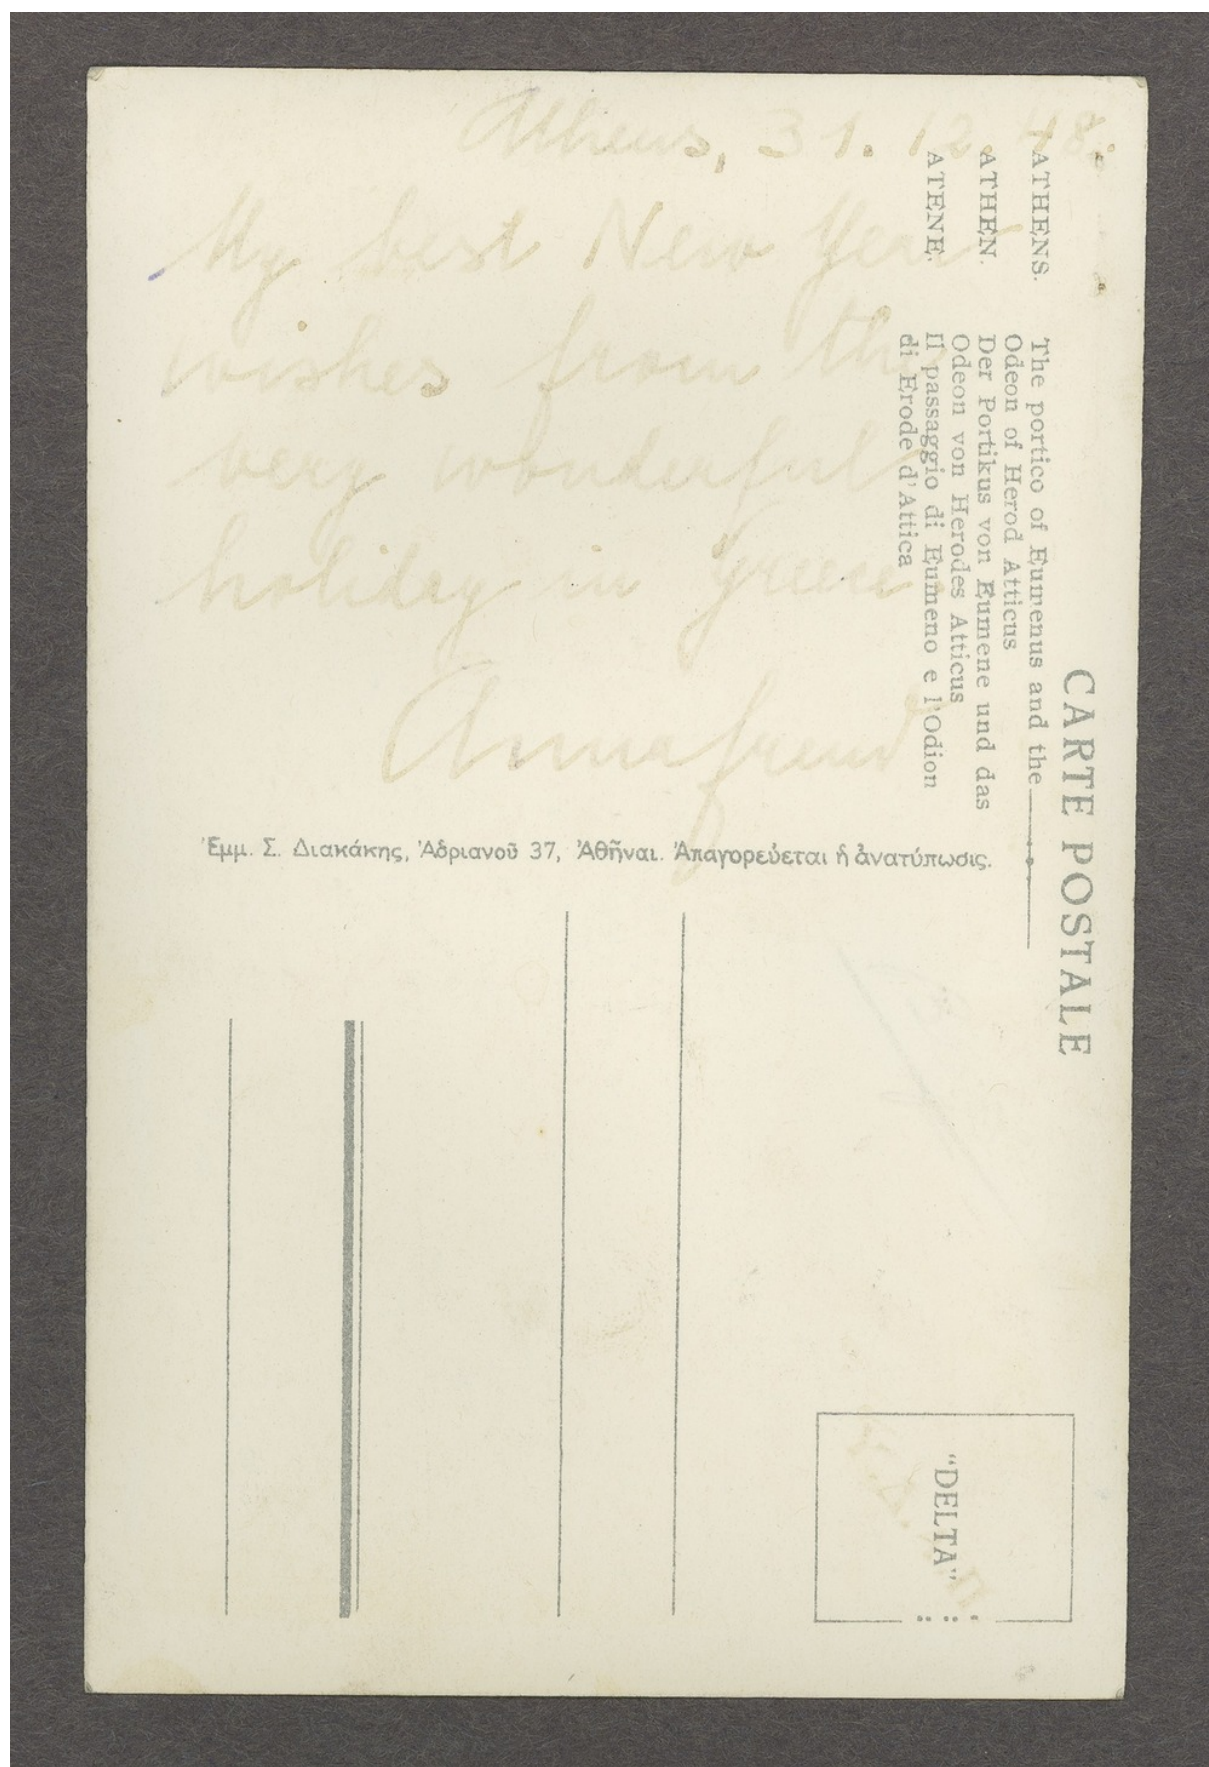 Athens, 31.12.48.
My best New Year
wishes from the
very wonderful
holiday in Greece
Annafreud
CARTE POSTALE
ATHENS. The portico of Eumenus and the
Odeon of Herod Atticus
ATHEN. Der Portikus von Eumene und das
Odeon von Herodes Atticus
ATENE. Il passaggio di Eumeno e l'Odion
di Erode d'Attica
Ἐμμ. Σ. Διακάκης, Ἀδριανοῦ 37, Ἀθῆναι. Ἀπαγορεύεται ἡ ἀνατύπωσις.
"DELTA"